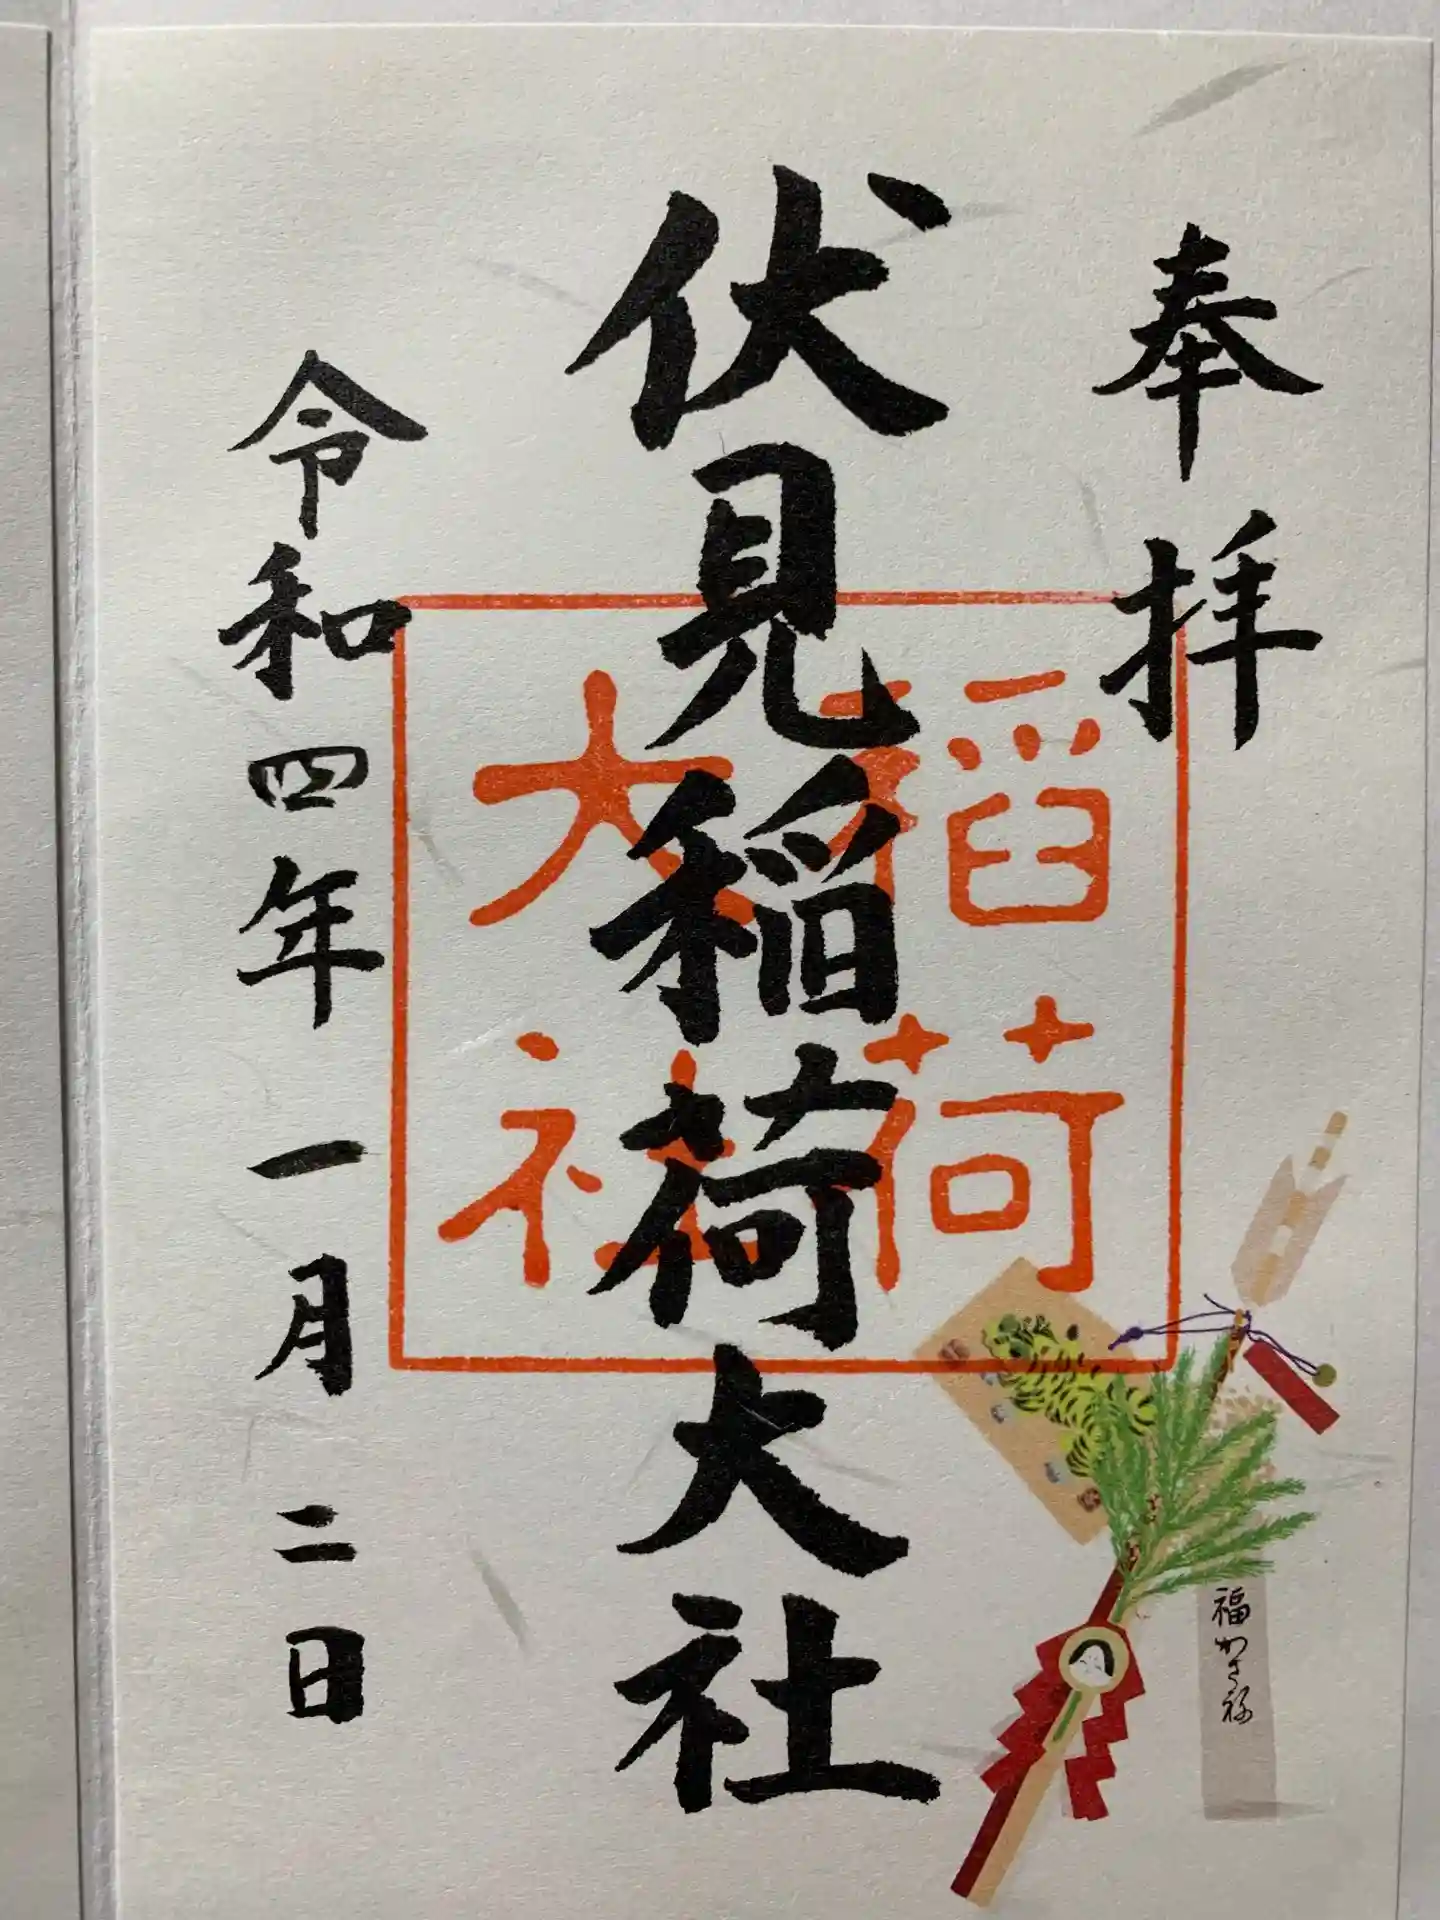 奉拝
伏見稲荷大社
稲荷
大社
令和四年一月二日
福かさね